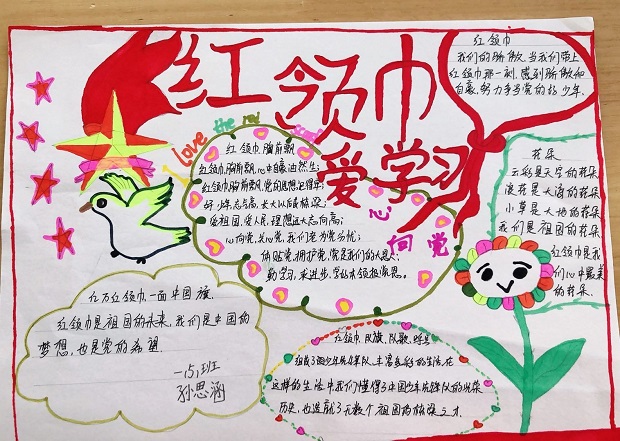 红领巾
爱学习
心向党
Love the red
红领巾
我们的骄傲,当我们带上
红领巾那一刻,感到骄傲和
自豪,努力争当党的好少年.
红领巾胸前飘
红领巾,胸前飘,心中自豪油然生;
红领巾,胸前飘,党的思想记得牢;
好少年志气高,长大以后做栋梁;
爱祖国,爱人民,理想远大志向高;
心向党,关心党,我们老为党分忧;
体贴党,拥护党,党是我们的大恩人;
勤学习,求进步,
花朵
云彩是天空的花朵
浪花是大海的花朵
小草是大地的花朵
我们是祖国的花朵
红领巾是我
们心中最美
的花朵.
红万红领巾,一面中国旗.
红领巾是祖国的未来,我们是中国的
梦想,也是党的希望.
一(5)班
孙思涵
红领巾,队旗,队歌,
丰富多彩的生活.在
这样的生活中我们懂得了中国少年先锋队的光荣
历史,也造就了无数个祖国的栋梁之才.